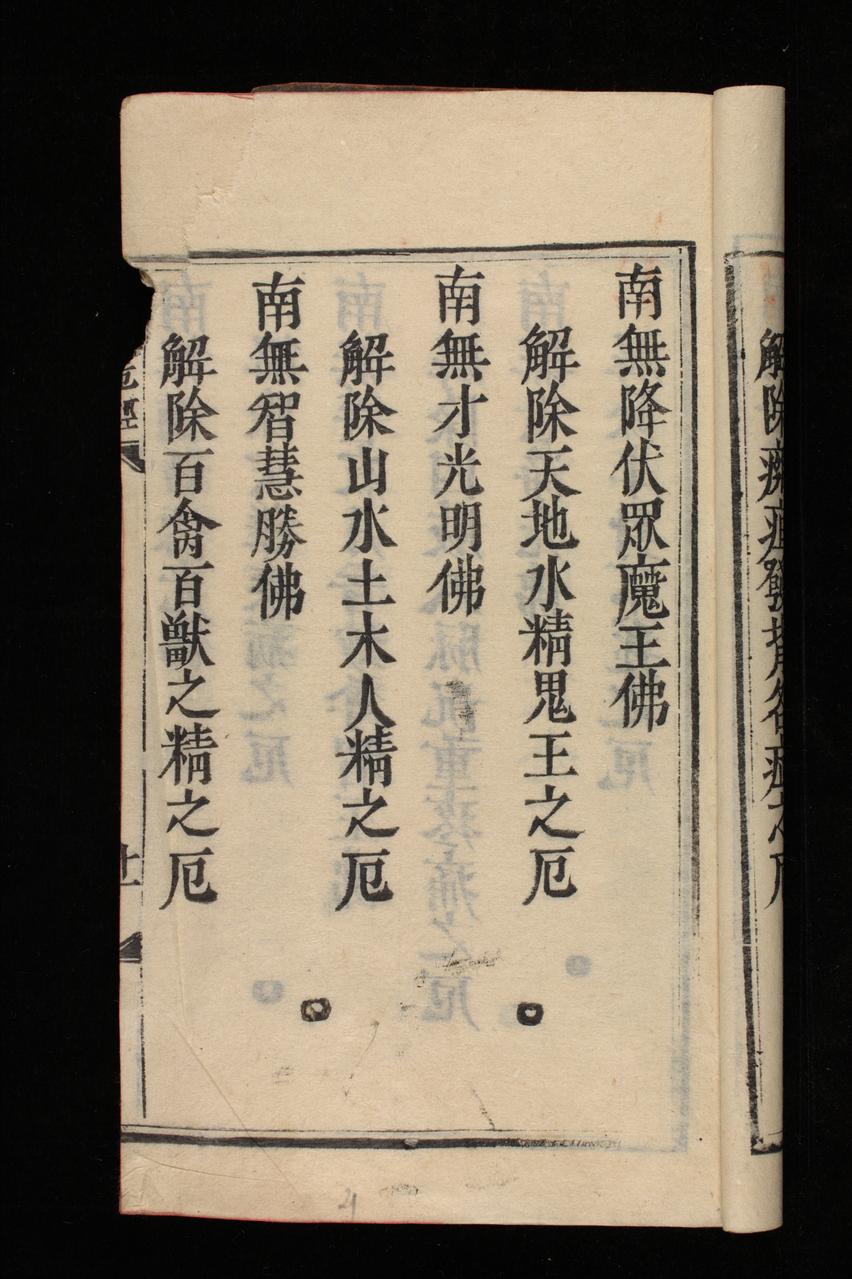 解除
南無降伏眾魔王佛
解除天地水精鬼王之厄
南無才光明佛
解除山水土木人精之厄
南無智慧勝佛
解除百禽百獸之精之厄
厄經
廿一
21